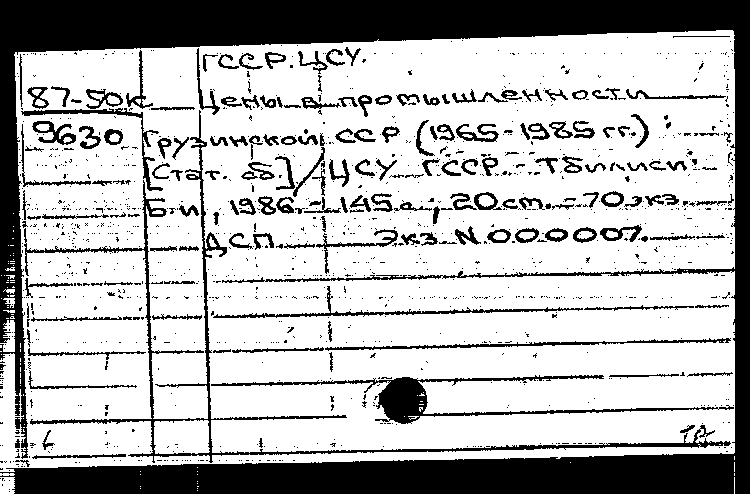 ГССР. ЦСУ.
87-50к Цены в промышленности
9630 Грузинской ССР (1965-1985 гг.) :
[Стат. сб] / ЦСУ ГССР. - Тбилиси:
Б.и, 1986. - 145с ; 20 cm. - 70 экз.
ДСП Экз N 000007.